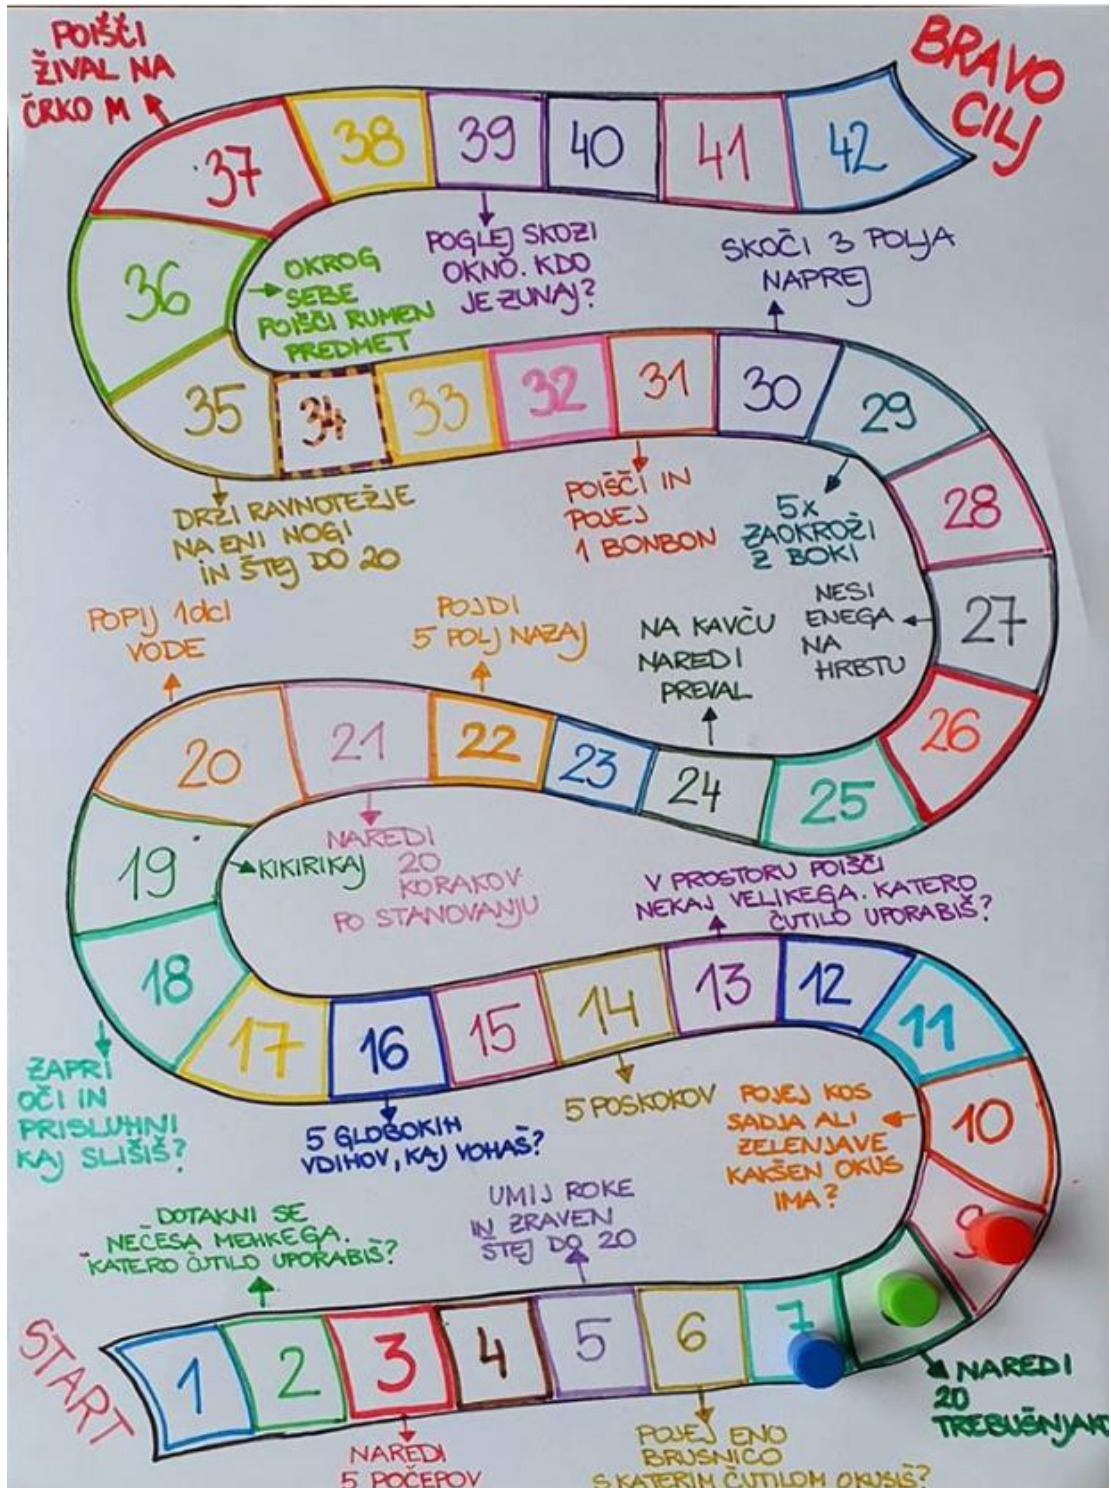 POIŠČI
ŽIVAL NA
ČRKO M
BRAVO
CILJ
37
38
39
40
41
42
36
OKROG
SEBE
POIŠČI RUMEN
PREDMET
POGLEJ SKOZI
OKNO. KDO
JE ZUNAJ?
SKOČI 3 POLJA
NAPREJ
35
34
33
32
31
30
29
28
DRŽI RAVNOTEŽJE
NA ENI NOGI
IN ŠTEJ DO 20
POIŠČI IN
POJEJ
1 BONBON
5X
ZAOKROŽI
Z BOKI
NESI
ENEGA
NA
HRBTU
27
POPIJ 1dcl
VODE
POJDI
5 POLJ NAZAJ
NA KAVČU
NAREDI
PREVAL
20
21
22
23
24
25
26
19
KIKIRIKAJ
NAREDI
20
KORAKOV
PO STANOVANJU
V PROSTORU POIŠČI
NEKAJ VELIKEGA. KATERO
ČUTILO UPORABIŠ?
18
17
16
15
14
13
12
11
10
ZAPRI
OČI IN
PRISLUHNI
KAJ SLIŠIŠ?
5 GLOBOKIH
VDIHOV, KAJ VOHAŠ?
5 POSKOKOV
POJEJ KOS
SADJA ALI
ZELENJAVE
KAKŠEN OKUS
IMA?
DOTAKNI SE
NEČESA MEHKEGA.
KATERO ČUTILO UPORABIŠ?
UMIJ ROKE
IN ZRAVEN
ŠTEJ DO 20
9
START
1
2
3
4
5
6
7
NAREDI
20
TREBUŠNJAKO
NAREDI
5 POČEPOV
POJEJ ENO
BRUSNICO
S KATERIM ČUTILOM OKUSIŠ?